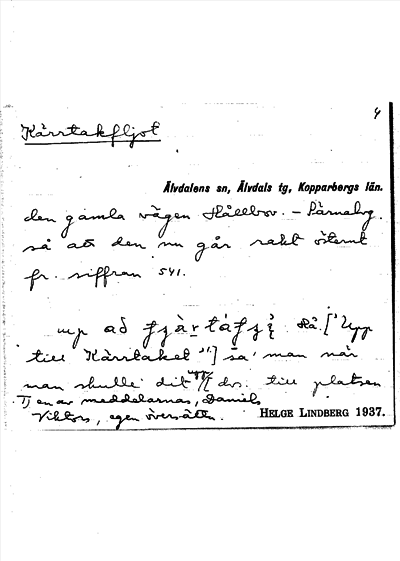 4
Kärrtakfljot
Älvdalens sn, Älvdals tg, Kopparbergs län.
den gamla vägen Hållbov. – Pärnabg.
så att den nu går rakt österut
fr. siffran 541.
upp að så. ["Upp
till Kärrtaket" 1)] sa' man när
man skulle dit upp/ dvs. till platsen
1) en av meddelarnas, Daniels
Viktors, egen översättn.
HELGE LINDBERG 1937.